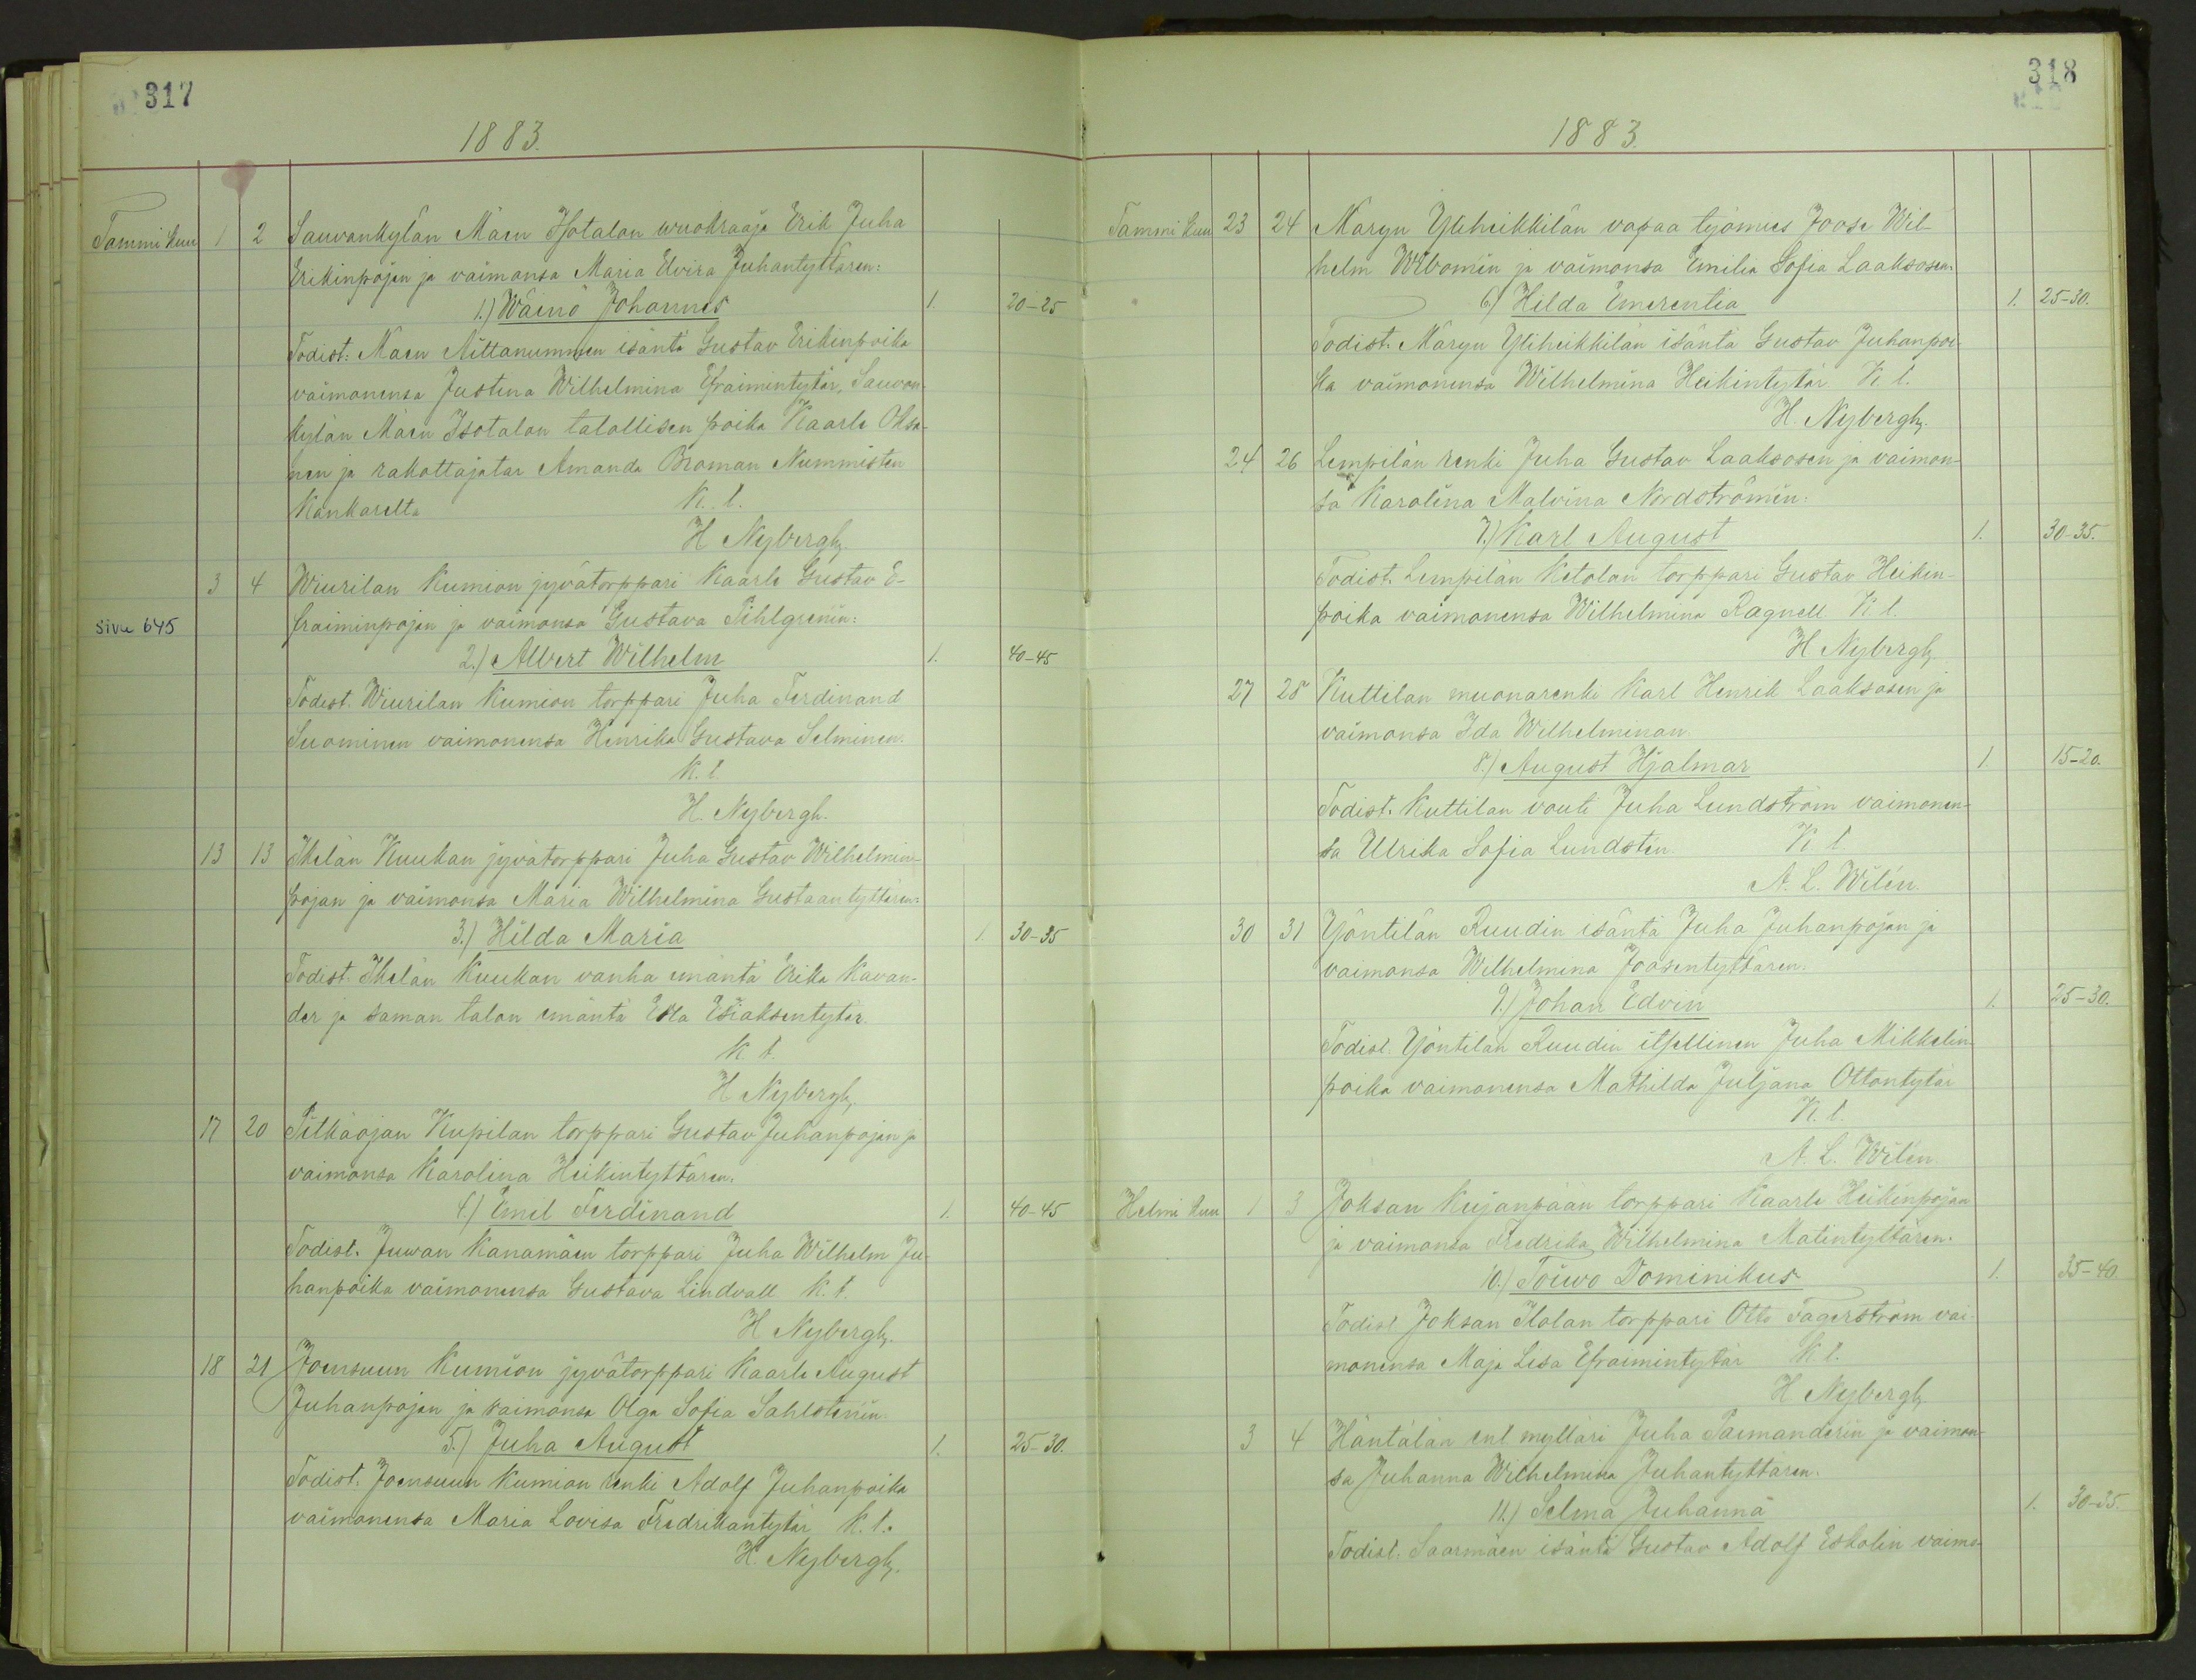 317
1883.
Tammi kuu 1 2 Sauvonkylän Mäen Isotalon wuokraaja Erik Juha
Erikinpojan ja vaimonsa Maria Elvira Juhantyttären:
1.) Wäinö Johannes 1. 20-25
Todist: Mäen Aittanummen isäntä Gustav Erikinpoika
vaimonensa Justina Wilhelmina Efraimintytär, Sauvon-
kylän Mäen Isotalon talollisen poika Kaarle Oksa-
nen ja rakottajatar Amanda Broman Nummisten
Kankarelta K. t.
H Nybergh.
3 4 Wiurilan Kumion jyvätorppari Kaarle Gustav E-
fraiminpojan ja vaimonsa Gustava Pihlgrenin:
sivu 645
2.) Albert Wilhelm 1. 40-45
Todist. Wiurilan Kumion torppari Juha Ferdinand
Suominen vaimonensa Henrika Gustava Selminen.
K. t.
H. Nybergh.
13 13 Ihelän Kuukan jyvätorppari Juha Gustav Wilhelmin-
pojan ja vaimonsa Maria Wilhelmina Gustaantyttären:
3.) Hilda Maria 1. 30-35
Todist. Ihelän Kuukan vanha emäntä Erika Kavan-
der ja saman talon emäntä Eva Esiaksentytär
K. t.
H Nybergh.
17 20 Pitkäojan Kupilan torppari Gustav Juhanpojan ja
vaimonsa Karolina Heikintyttären.
4.) Emil Ferdinand 1. 40-45
Todist. Juwan Kanamäen torppari Juha Wilhelm Ju-
hanpoika vaimonensa Gustava Lindvall K. t.
H Nybergh.
18 21 Joensuun Kumion jyvätorppari Kaarle August
Juhanpojan ja vaimonsa Olga Sofia Sahlstenin
5.) Juha August 1. 25-30.
Todist. Joensuun Kumion renki Adolf Juhanpoika
vaimonensa Maria Lovisa Fredrikantytär K. t.
H. Nybergh.
318
1883.
Tammi kuu 23 24 Maryn Yliheikkilän vapaa työmies Joose Wil-
helm Wibomin ja vaimonsa Emilia Sofia Laaksosen.
6.) Hilda Emerentia 1. 25-30.
Todist. Märyn Yliheikkilän isäntä Gustav Juhanpoi-
ka vaimonensa Wilhelmina Heikintytär K. t.
H. Nybergh.
24 26 Lempilän renki Juha Gustav Laaksosen ja vaimon-
sa Karolina Malvina Nordströmin:
7.) Karl August 1. 30-35.
Todist. Lempilän Ketolan torppari Gustav Heikin-
poika vaimonensa Wilhelmina Ragnell K. t
H Nybergh
27 28 Kuttilan muonarenki Karl Henrik Laaksosen ja
vaimonsa Ida Wilhelminan.
8.) August Hjalmar 1. 15-20.
Todist. Kuttilan vouti Juha Lundström vaimonen-
sa Ulrika Sofia Lundstén. K. t.
A. L. Wilén.
30 31 Yöntilän Ruudin isäntä Juha Juhanpojan ja
vaimonsa Wilhelmina Joosentyttären.
9.) Johan Edvin 1. 25-30.
Todist. Yöntilän Ruudin itsellinen Juha Mikkelin-
poika vaimonensa Mathilda Juljana Ottontytär
K. t.
A. L. Wilén.
Helmi kuu 1 3 Joksan Kujanpään torppari Kaarle Heikinpojan
ja vaimonsa Fredrika Wilhelmina Matintyttären.
10.) Toiwo Dominikus 1. 35-40
Todist Joksan Ilolan torppari Otto Fagerström vai-
monensa Maja Lisa Efraimintytär K. t.
H Nybergh
3 4 Häntälän ent mylläri Juha Tamanderin ja vaimon-
sa Juhanna Wilhelmina Juhantyttären.
11.) Selma Juhanna 1. 30-35.
Todist. Saarmäen isäntä Gustav Adolf Eskolin vaimo-